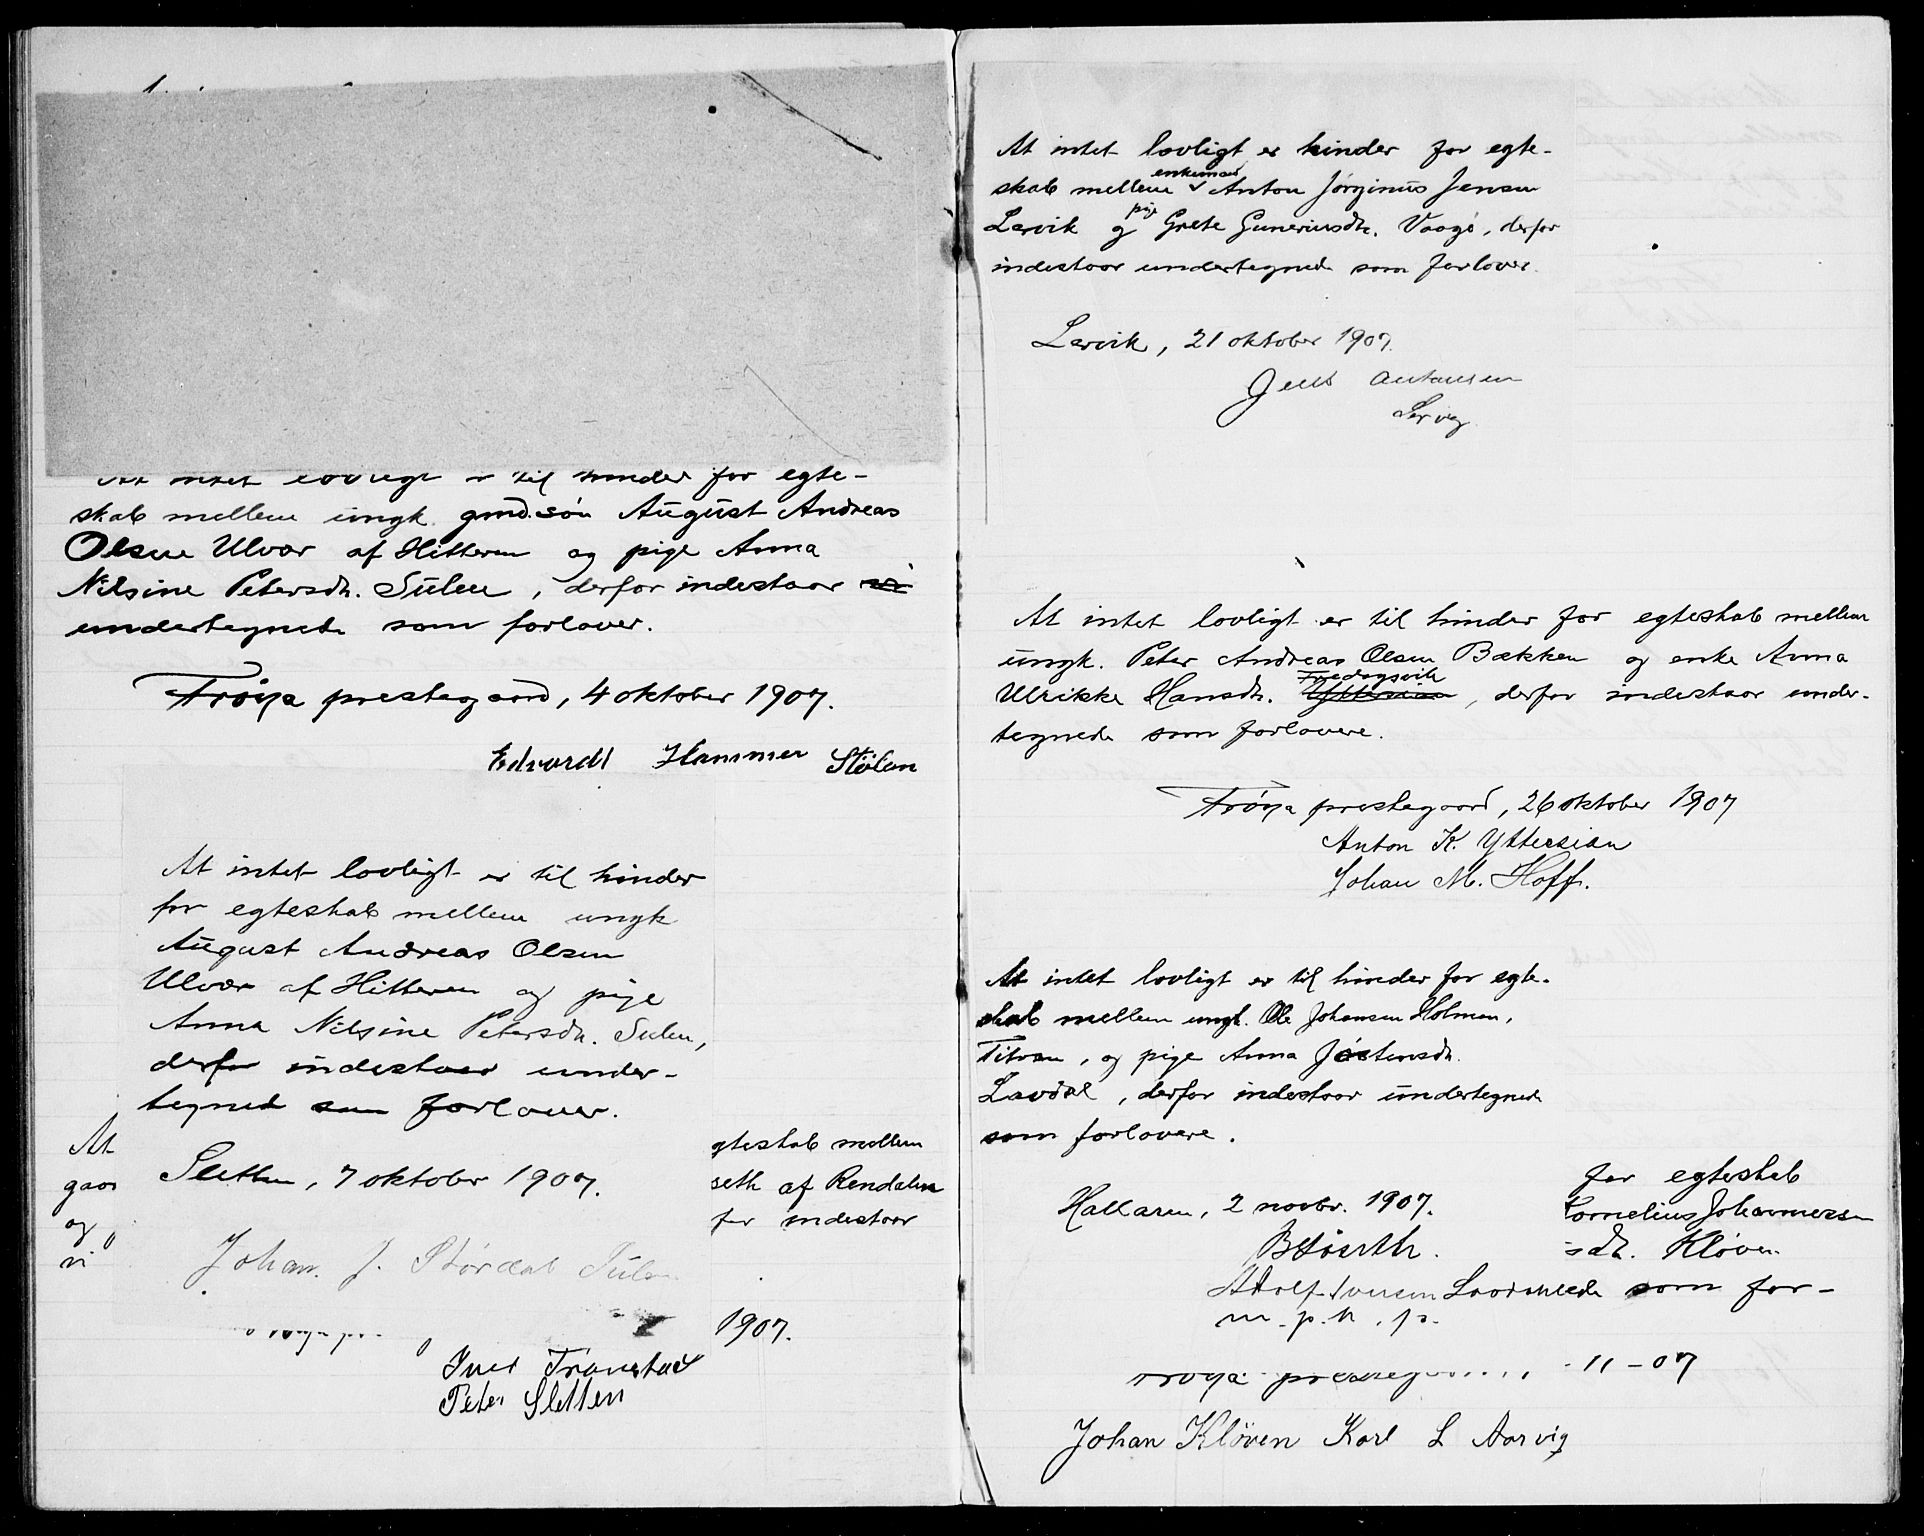 At intet lovligt er til hinder for egte-
skab mellem ungk. gmd.søn August Andreas
Olsen Ulvær af Hitteren og pige Anna
Nilsine Petersdtr. Sulen, derfor indestaar vi
undertegnede som forlover.
Frøya prestegaard, 4 oktober 1907.
Edvardt Hammer Stølan
At intet lovligt er til hinder
for egteskab mellem ungk
August Andreas Olsen
Ulvær af Hitteren og pige
Anna Nilsine Petersdtr. Sulen,
derfor indestaar under-
tegnede som forlover.
Sletten, 7 oktober 1907.
Johan. J. Størdal Sulen
At
gaar
og
vi
gteskab mellem
seth af Rendalen
for indestaar
1907.
Peter Sletten
At intet lovligt er hinder for egte-
skab mellem enkemand Anton Jørginus Jensen
Lervik og pige Grete Guneriusdtr. Vaagø, derfor
indestaar undertegnede som forlover.
Lervik, 21 oktober 1907.
Jens Antonsen
Lervig
At intet lovligt er til hinder for egteskab mellem
ungk. Peter Andreas Olsen Bækken og enke Anna
Ulrikke Hansdtr. Yttersian Fredagsvik, derfor indestaar under-
tegnede som forlovere.
Frøya prestegaard, 26 oktober 1907
Anton K. Yttersian
Johan M. Hoff.
At intet lovligt er til hinder for egte-
skab mellem ungk. Ole Johansen Holmen,
Titran, og pige Anna Jostensdtr.
Lavdal, derfor indestaar undertegnede
som forlovere.
Hallaren, 2 novbr. 1907.
Adolf Iversen
m. p. p.
for egteskab
Kornelius Johannessen
sdtr. Kløven
som for-
røya presteg
11-07
Johan Kløven Karl L Aarvig